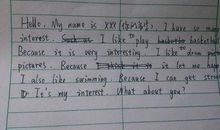 Hello, My name is XXX (你的名字), I have so many
interest. Such as I like to play basketball
Because it is very interesting. I like to draw
pictures. Because it let me
I also like swimming. Because I can get
It's my interest. What about you?